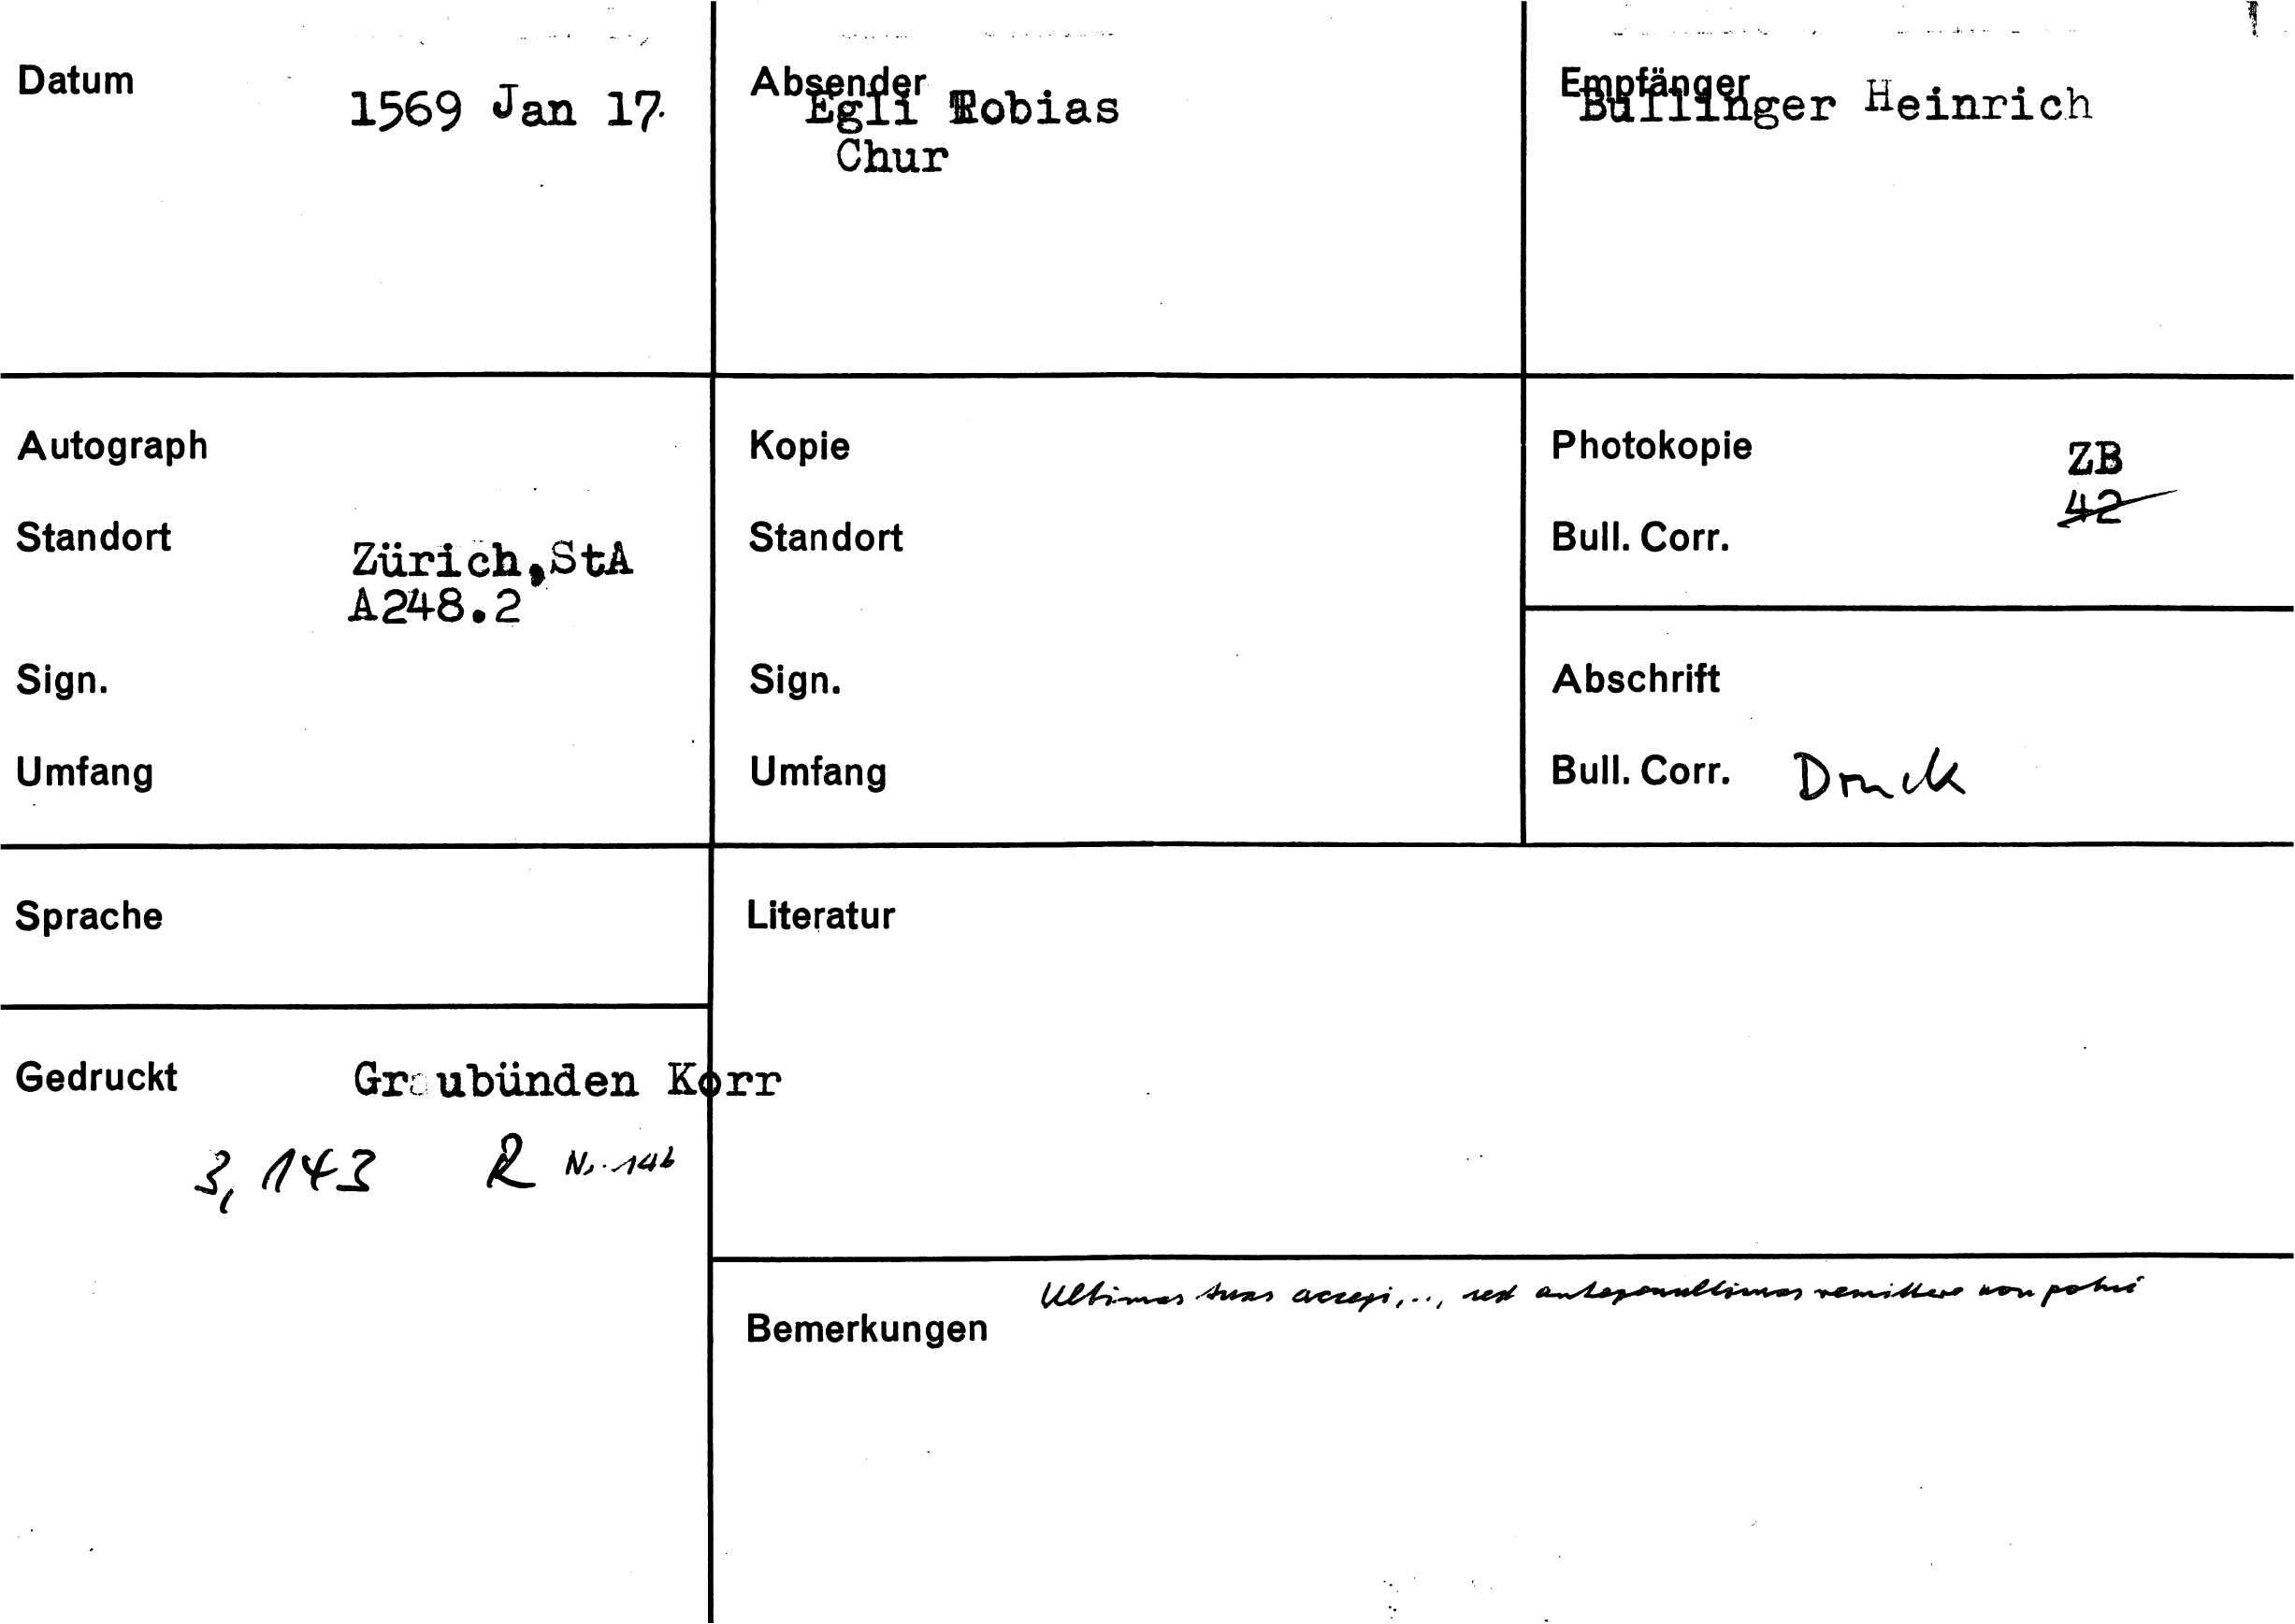 Datum 1569 Jan 17.
Absender Egli Tobias
Chur
Empfänger Bullinger Heinrich
Autograph
Standort Zürich,StA
A248.2
Sign.
Umfang
Kopie
Standort
Sign.
Umfang
Photokopie ZB
42
Bull. Corr.
Abschrift
Bull. Corr. Druck
Sprache
Literatur
Gedruckt Graubünden Korr
3, 143 R Nr. 146
Bemerkungen
Ultimas tuas accepi, .., sed antepenultimas remittere non potui